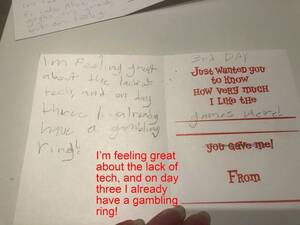 I'm Feeling great
about the lack of
tech, and on day
three I already
have a gambling
ring!
I'm feeling great
about the lack of
tech, and on day
three I already
have a gambling
ring!
3rd DAY
Just Wanted you
to Know
How very much
I Like the
games here!
you gave me!
From